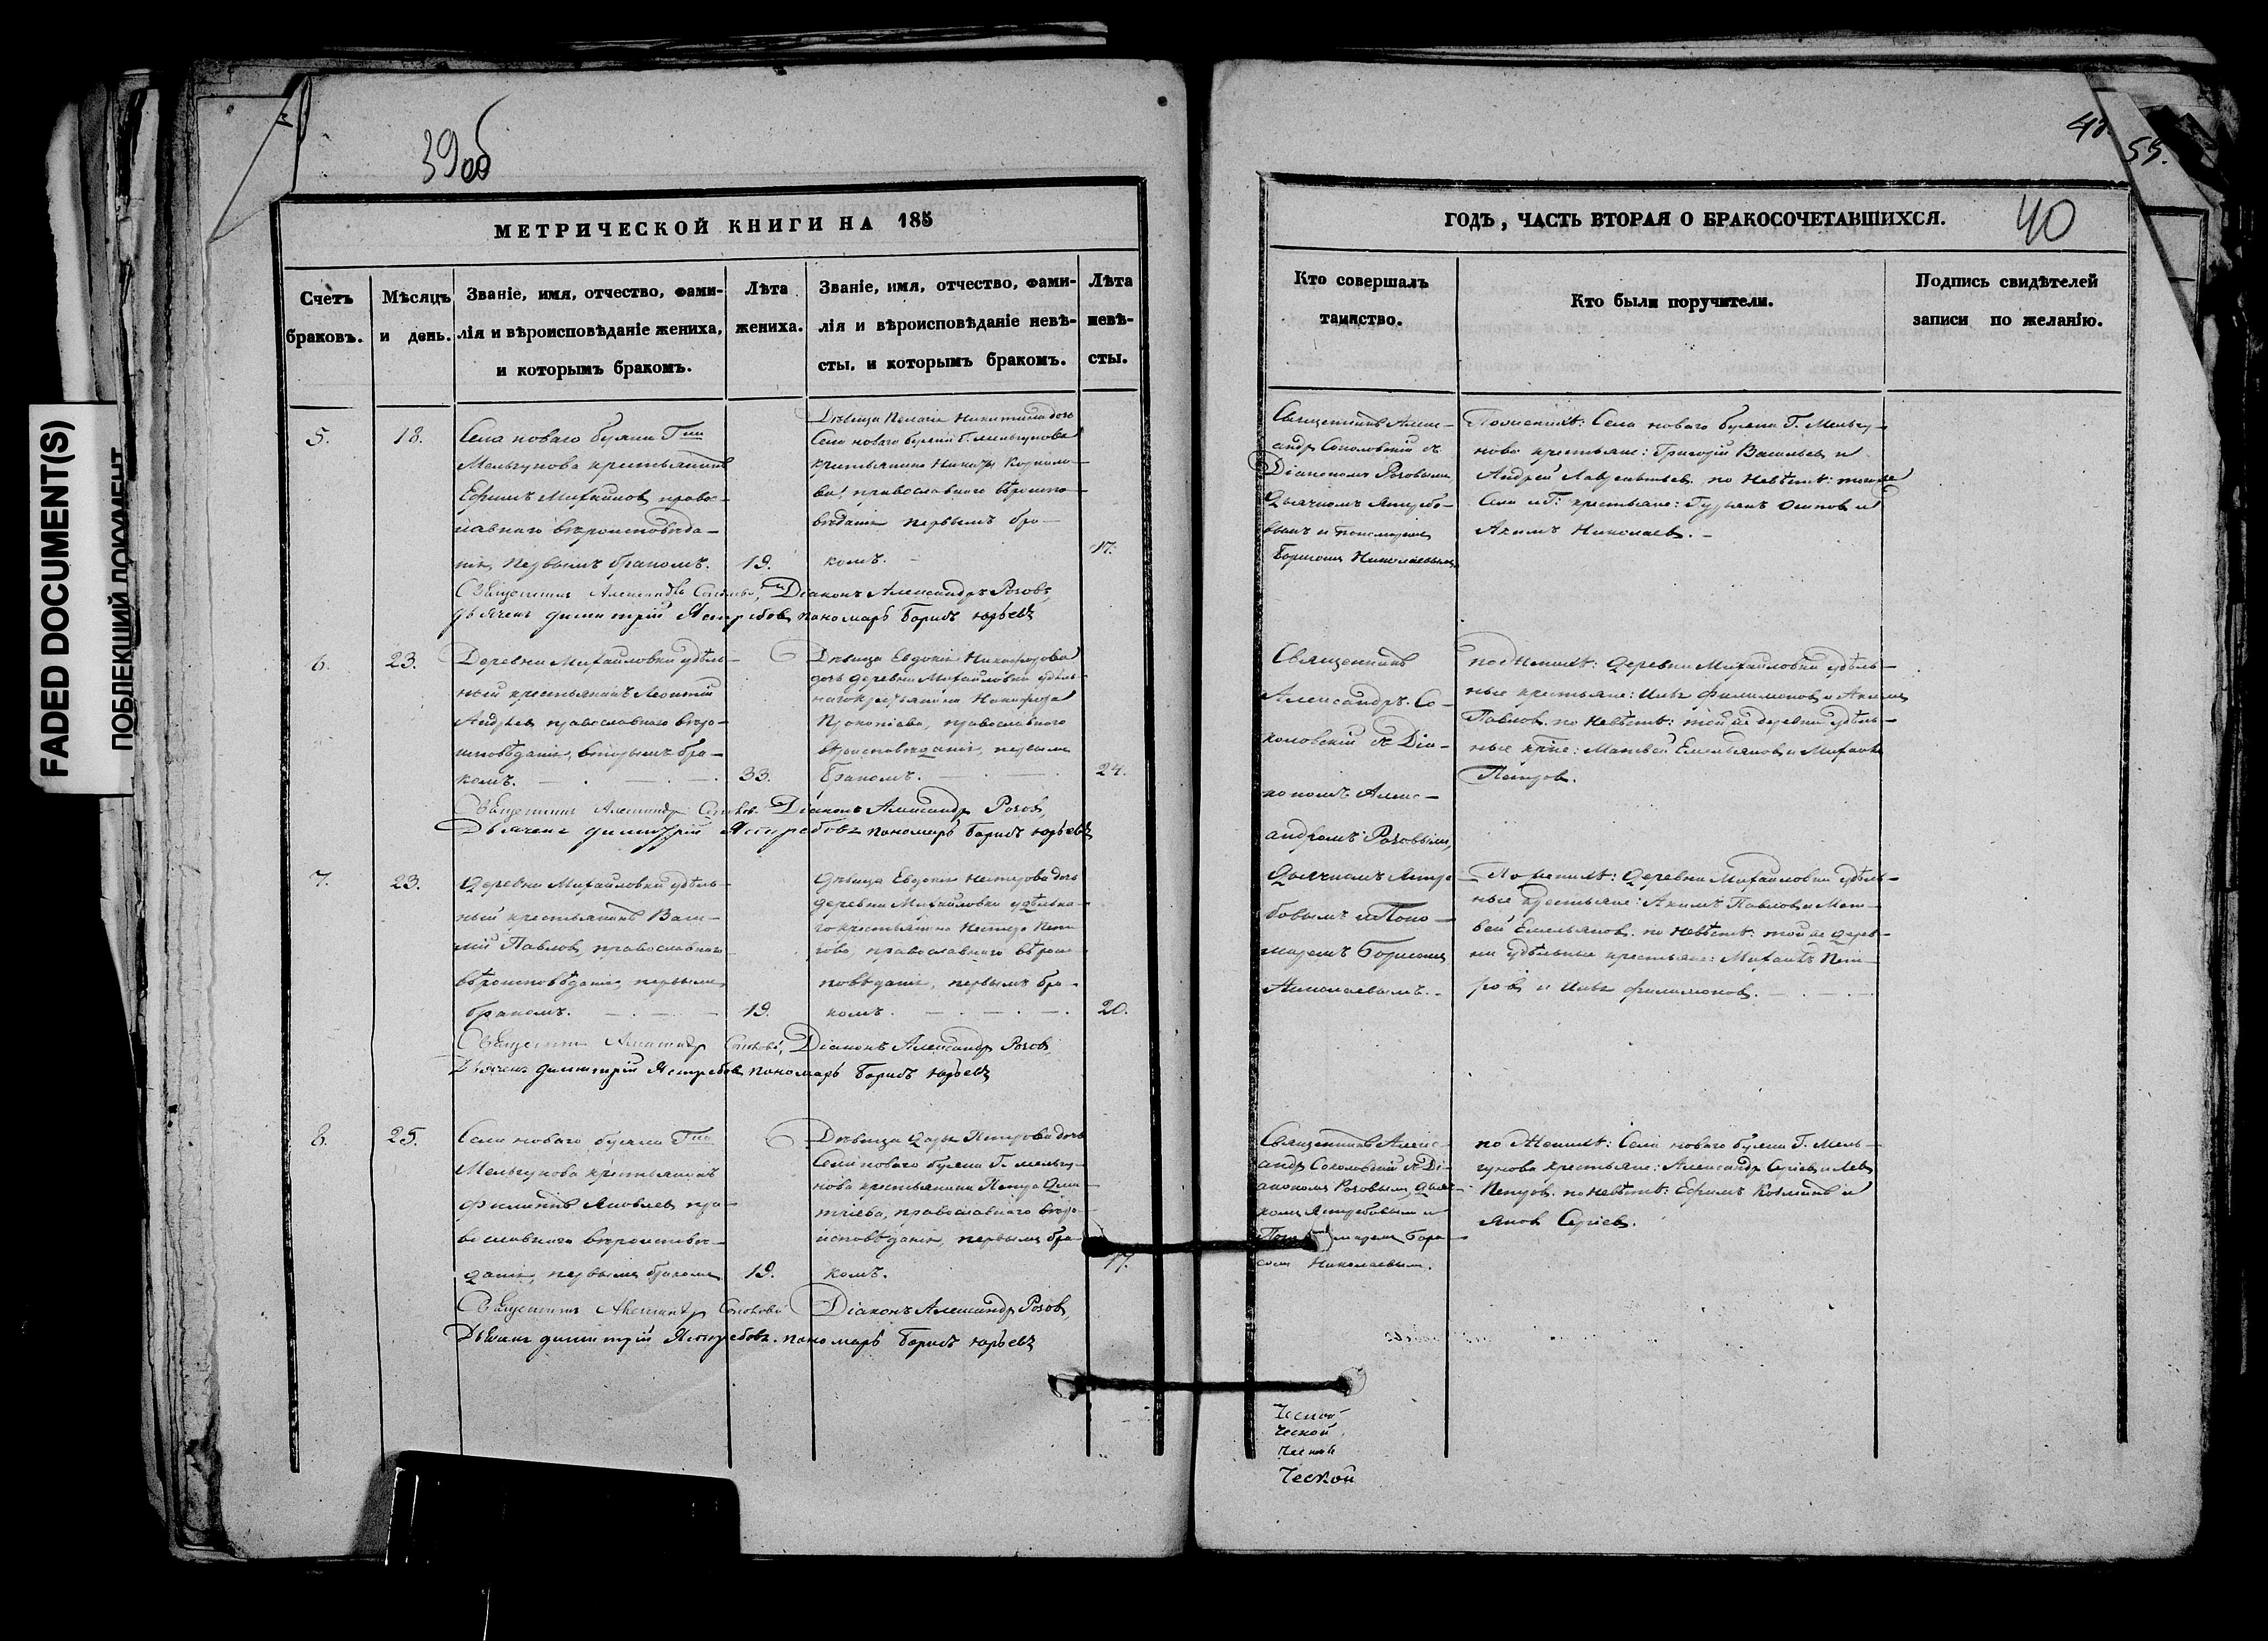 39об
МЕТРИЧЕСКОЙ КНИГИ НА 185
Счетъ браковъ.
Мѣсяцъ и день.
Званіе, имя, отчество, фами-
лія и вѣроисповѣданіе жениха,
и которымъ бракомъ.
Лѣта
жениха.
Званіе, имя, отчество, фами-
лія и вѣроисповѣданіе невѣ-
сты, и которымъ бракомъ.
Лѣта
невѣ-
сты.
5.
18.
Села новаго буяна Гна
Мельгунова крестьянинъ
Ефимъ Михайловъ, право-
славнаго вѣроисповѣда-
нія, первымъ бракомъ.
19.
Дѣвица Пелагія Никитина дочь
Села новаго буяна Г. Мельгунова
крестьянина Никиты
православнаго вѣроиспо-
вѣданія первымъ бра-
комъ.
17.
Священникъ Александръ Соколовскій, Діаконъ Александръ Розовъ,
дьячекъ димитрій Ястребовъ, пономарь Борисъ юрьевъ
6.
23.
Деревни Михайловки удѣль-
ный крестьянинъ Леонтій
Андреевъ, православнаго вѣро-
исповѣданія, вторымъ бра-
комъ.
33.
Дѣвица Евдокія Никифорова
дочь деревни Михайловки удѣль-
наго крестьянина Никифора
Прокопіева, православнаго
вѣроисповѣданія, первымъ
бракомъ.
24.
Священникъ Александръ Соколовскій Діаконъ Александръ Розовъ,
Дьячекъ димитрій Ястребовъ пономарь Борисъ юрьевъ
7.
23.
Деревни Михайловки удѣль-
ный крестьянинъ Васи-
лій Павловъ, православнаго
вѣроисповѣданія, первымъ
бракомъ.
19.
Дѣвица Евдокія Нестерова дочь
деревни Михайловки удѣльна-
го крестьянина Нестера Пет-
рова, православнаго вѣроис-
повѣданія, первымъ бра-
комъ.
20.
Священникъ Александръ Соколовскій, Діаконъ Александръ Розовъ,
Дьячекъ димитрій Ястребовъ пономарь Борисъ юрьевъ
8.
25.
Села новаго буяна Гна
Мельгунова крестьянинъ
Филиппъ Яковлевъ, пра-
вославнаго вѣроисповѣ-
данія, первымъ бракомъ
19.
Дѣвица Дарья Петрова дочь
Села новаго буяна Г. Мельгу-
нова крестьянина Петра Дми-
тріева, православнаго вѣро-
исповѣданія, первымъ бра-
комъ.
17.
Священникъ Александръ Соколовскій Діаконъ Александръ Розовъ,
Дьячекъ димитрій Ястребовъ. пономарь Борисъ юрьевъ
55.
40
ГОДЪ, ЧАСТЬ ВТОРАЯ О БРАКОСОЧЕТАВШИХСЯ.
Кто совершалъ
таинство.
Кто были поручители.
Подпись свидѣтелей
записи по желанію.
Священникъ Алекс-
андръ Соколовскій съ
Діакономъ Розовымъ
Дьячкомъ Ястребо-
вымъ и Пономаремъ
Борисомъ Николаевымъ
По женихѣ: Села новаго буяна Г. Мельгу-
нова крестьяне: Григорій Васильевъ и
Андрей Лаврентьевъ. по Невѣстѣ: того же
Села и Г: крестьяне: Гурьянъ Осиповъ и
Акимъ Николаевъ.
Священникъ
Александръ Со-
коловскій съ Діа-
кономъ Алекс-
андромъ Розовымъ,
Дьячкомъ Ястре-
бовымъ и Поно-
маремъ Борисомъ
Николаевымъ.
по Женихѣ: деревни Михайловки удѣль-
ные крестьяне: Илья Филимоновъ и Акимъ
Павловъ. по Невѣстѣ: той же деревни удѣль-
ные крне: Матвей Емельяновъ и Михаилъ
Петровъ.
По женихѣ: Деревни Михайловки удѣль-
ные крестьяне: Акимъ Павловъ и Мат-
вей Емельяновъ. по Невѣстѣ: той же дерев-
ни удѣльные крестьяне: Михаилъ Пет-
ровъ и Илья Филимоновъ.
Священникъ Алекс-
андръ Соколовскій съ Ді-
акономъ Розовымъ, Дьяч-
комъ Ястребовымъ и
Пономаремъ Бори-
сомъ Николаевымъ.
по Женихѣ: Села новаго буяна Г. Мель-
гунова крестьяне: Александръ Сергіевъ и Левъ
Петровъ. по Невѣстѣ: Ефимъ Козминъ и
Яковъ Сергіевъ.
ческой
ческой
ческой
ческой
FADED DOCUMENT(S)
ПОБЛЕКШИЙ ДОКУМЕНТ